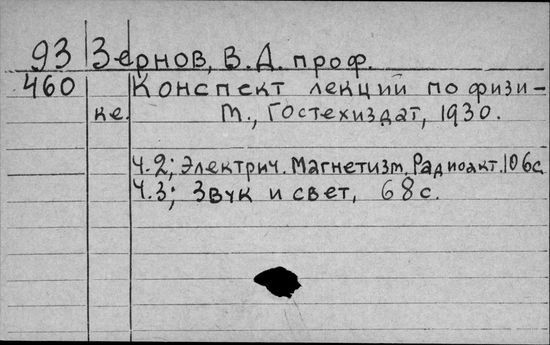 93 Зернов, В.Д. проф.
460 Конспект лекций по физи-
ке. М., Гостехиздат, 1930.
Ч.2; Электрич. Магнетизм. Радиоакт. 106с.
Ч.3; Звук и свет, 68с.